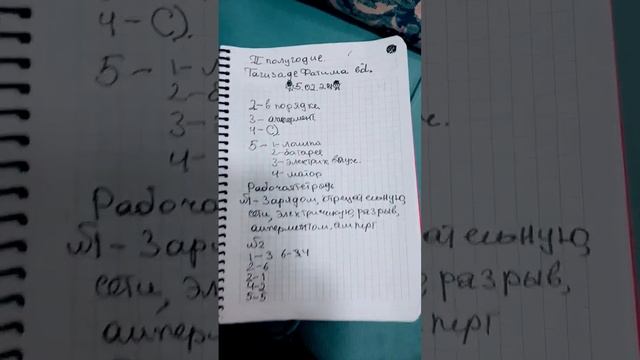 II полугодие.
Тагизаде Фатима 6д.
5.02.24
2-в порядке
3- амперметт
4-С).
5-1-лампа
2-батарея
3-электрик выкл.
4-мотор
Рабочая тетрадь
№1-Зарядом, отрецательную,
сети, электрическую, разрыв,
амперметтом, ампер
№2
1-3 6-3,4
2-6
2-1
4-2
5-5